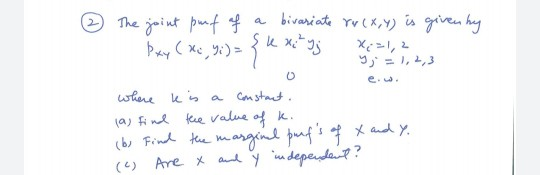 ② The joint pmf of a bivariate rv (X,Y) is given by
p_XY (xi, yi) = { k xi² yj    xi = 1, 2
yj = 1, 2, 3
0    e.w.
where k is a constant.
(a) Find the value of k.
(b) Find the marginal pmf's of X and Y.
(c) Are X and Y independent?